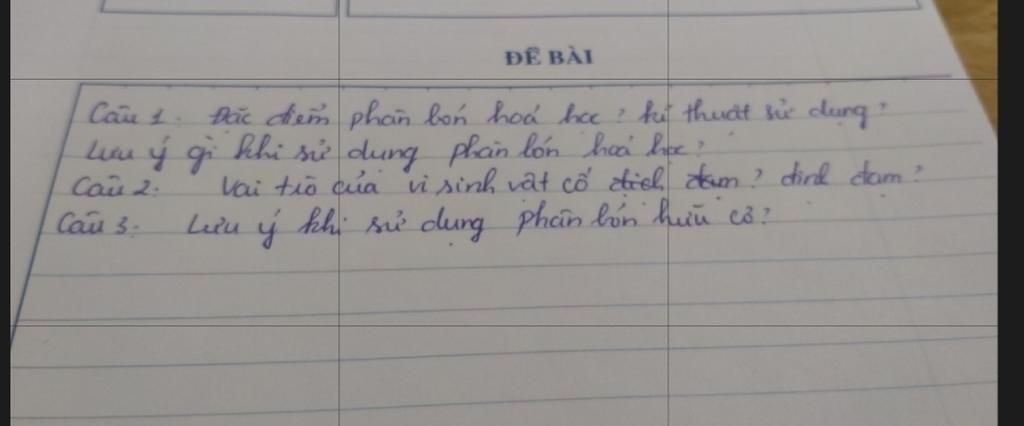 ĐỀ BÀI
Câu 1. Đặc điểm phân bón hoá học? kĩ thuật sử dụng?
Lưu ý gì khi sử dụng phân bón hoá học?
Câu 2: Vai trò của vi sinh vật cố định đạm?
Câu 3. Lưu ý khi sử dụng phân bón hữu cơ?